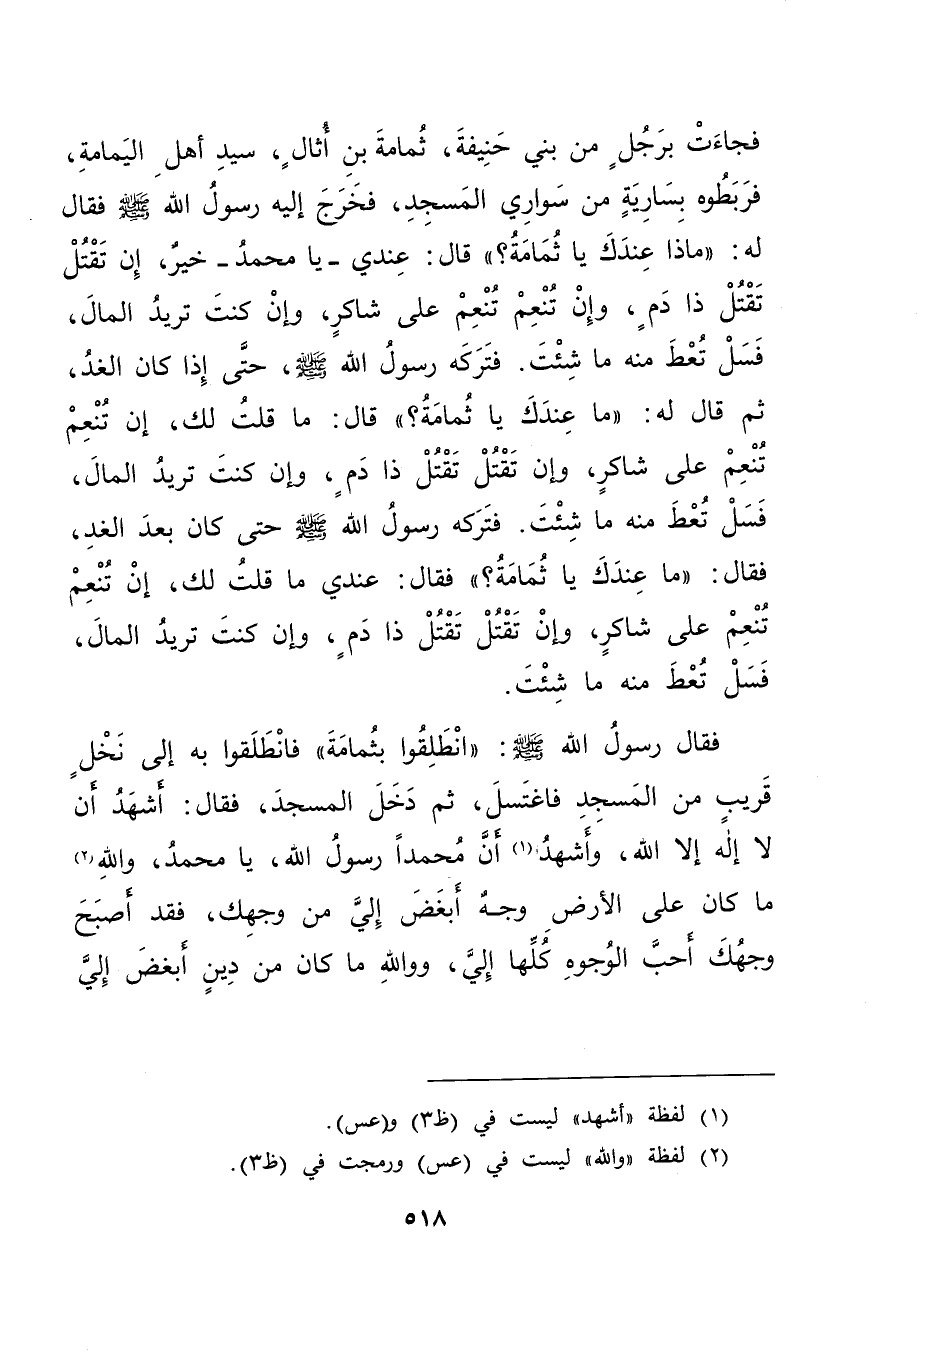 فجاءَتْ برَجُلٍ من بني حَنِيفةَ، ثُمامةَ بنِ أُثالٍ، سيدِ أهلِ اليَمامةِ،
فرَبَطُوه بِسَارِيَةٍ من سَواري المَسجِدِ، فخَرَجَ إليه رسولُ الله ﷺ فقال
له: «ماذا عِندَكَ يا ثُمَامَةُ؟» قال: عِندي ـ يا محمدُ ـ خيرٌ، إِن تَقْتُلْ
تَقْتُلْ ذا دَمٍ، وإِنْ تُنْعِمْ تُنْعِمْ على شاكرٍ، وإنْ كنتَ تريدُ المالَ،
فَسَلْ تُعْطَ منه ما شِئْتَ. فتَرَكَه رسولُ الله ﷺ، حتَّى إِذا كان الغدُ،
ثم قال له: «ما عِندَكَ يا ثُمامَةُ؟» قال: ما قلتُ لك، إن تُنْعِمْ
تُنْعِمْ على شاكرٍ، وإن تَقْتُلْ تَقْتُلْ ذا دَمٍ، وإن كنتَ تريدُ المالَ،
فَسَلْ تُعْطَ منه ما شِئْتَ. فتَركه رسولُ الله ﷺ حتى كان بعدَ الغدِ،
فقال: «ما عِندَكَ يا ثُمَامَةُ؟» فقال: عندي ما قلتُ لك، إنْ تُنْعِمْ
تُنْعِمْ على شاكرٍ، وإنْ تَقْتُلْ تَقْتُلْ ذا دَمٍ، وإن كنتَ تريدُ المالَ،
فَسَلْ تُعْطَ منه ما شِئْتَ.
فقال رسولُ الله ﷺ: «انْطَلِقُوا بثُمامَةَ» فانْطَلَقوا به إلى نَخْلٍ
قَريبٍ من المَسجِدِ فاغتَسلَ، ثم دَخَلَ المسجدَ، فقال: أَشهَدُ أَن
لا إلٰه إلا الله، وأَشهدُ(١) أَنَّ مُحمداً رسولُ الله، يا محمدُ، واللهِ(٢)
ما كان على الأرضِ وجهٌ أَبغَضَ إِليَّ من وجهِك، فقد أَصبَحَ
وجهُكَ أَحبَّ الوُجوهِ كُلِّها إليَّ، وواللهِ ما كان من دِينٍ أَبغضَ إِليَّ
(١) لفظة «أشهد» ليست في (ظ٣) و(عس).
(٢) لفظة «والله» ليست في (عس) ورمجت في (ظ٣).
٥١٨